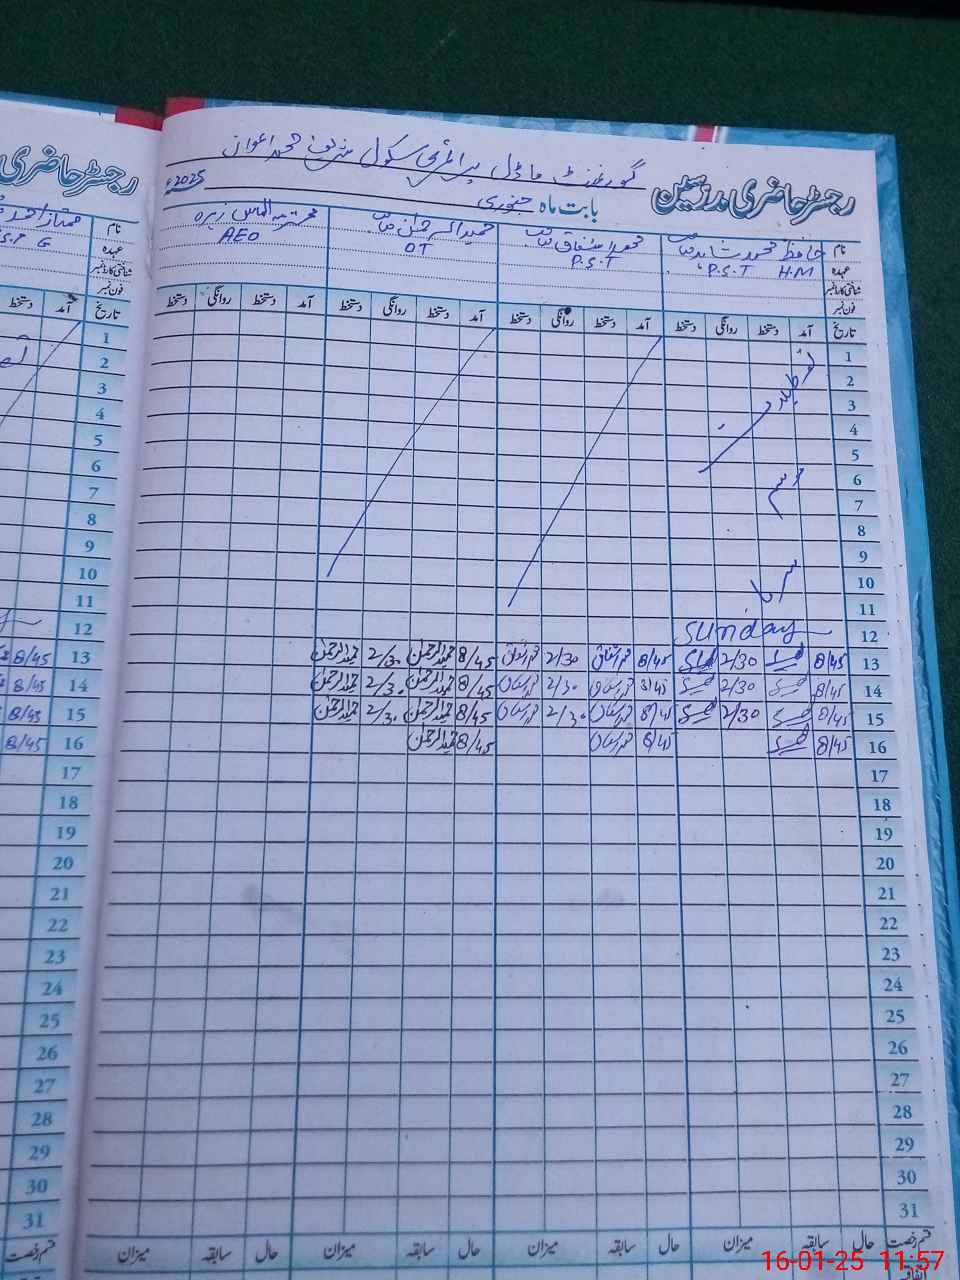 رجسٹر حاضری مدرسین گورنمنٹ ماڈل پرائمری سکول شریف محمد اعوان
بابت ماہ جنوری 2025ء
نام حافظ محمد شاہد صاحب محمد اشفاق صاحب حمید الرحمٰن صاحب محترمہ الماس زہرہ
عہدہ P.S.T H.M P.S.T OT AEO
شناختی کارڈ نمبر
فون نمبر
تاریخ آمد دستخط روانگی دستخط آمد دستخط روانگی دستخط آمد دستخط روانگی دستخط آمد دستخط روانگی دستخط
1
2
3
4
5
6
7
8
9
10
11
تعطیلات موسم سرما
12 Sunday
13 8/45 2/30 8/45 محمد اشفاق 2/30 محمد اشفاق 8/45 حمید الرحمٰن 2/30 حمید الرحمٰن
14 8/45 2/30 8/45 محمد اشفاق 2/30 محمد اشفاق 8/45 حمید الرحمٰن 2/30 حمید الرحمٰن
15 8/45 2/30 8/45 محمد اشفاق 2/30 محمد اشفاق 8/45 حمید الرحمٰن 2/30 حمید الرحمٰن
16 8/45 8/45 محمد اشفاق 8/45 حمید الرحمٰن
17
18
19
20
21
22
23
24
25
26
27
28
29
30
31
قسم رخصت حال سابقہ میزان حال سابقہ میزان حال سابقہ میزان حال سابقہ میزان
اتفاقیہ
رجسٹر حاضری
نام
عہدہ
شناختی کارڈ نمبر
فون نمبر
تاریخ آمد دستخط
1
2
3
4
5
6
7
8
9
10
11
12
13 8/45
14 8/45
15 8/45
16 8/45
17
18
19
20
21
22
23
24
25
26
27
28
29
30
31
قسم رخصت
16-01-25 11:57